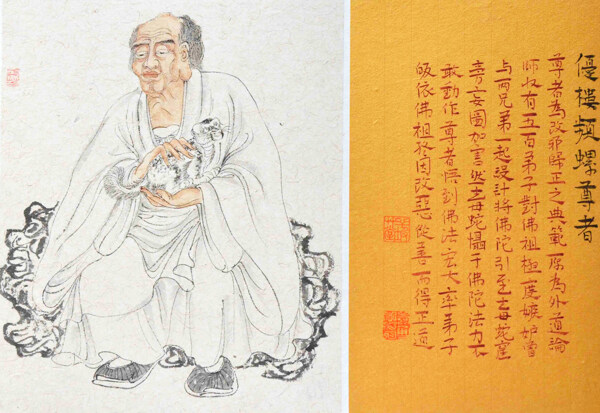 優樓頻螺尊者
尊者為改邪歸正之典範原為外道論
师有五百弟子對佛祖極度嫉妒曾
与两兄弟一起設計将佛陀引至毒蛇窟
旁妄圖加害然毒蛇懾于佛陀法力不
敢動作尊者悟到佛法宏大率弟子
皈依佛祖終因改惡從善而得正道